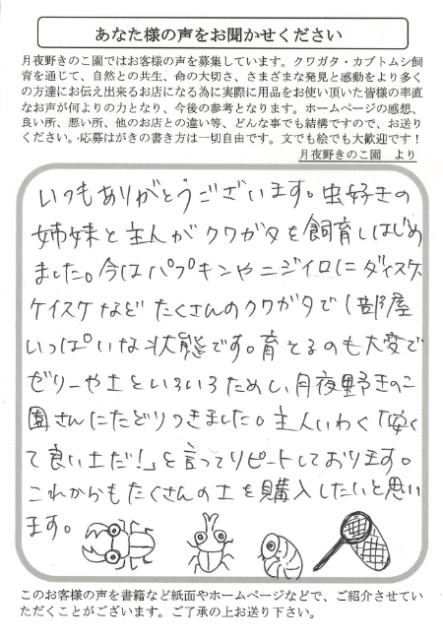 あなた様の声をお聞かせください
月夜野きのこ園ではお客様の声を募集しています。クワガタ・カブトムシ飼
育を通じて、自然との共生、命の大切さ、さまざまな発見と感動をより多く
の方達にお伝え出来るお店になる為に実際に用品をお使い頂いた皆様の率直
なお声が何よりの力となり、今後の参考となります。ホームページの感想、
良い所、悪い所、他のお店との違い等、どんな事でも結構ですので、お送り
ください。応募はがきの書き方は一切自由です。文でも絵でも大歓迎です！
月夜野きのこ園　より
いつもありがとうございます。虫好きの
姉妹と主人がクワガタを飼育しはじめ
ました。今はパプキンやニジイロにダイスケ
ケイスケなどたくさんのクワガタで1部屋
いっぱいな状態です。育とるのも大変で
ゼリーや土といろいろためし、月夜野きのこ
園さんにたどりつきました。主人いわく「安く
て良い土だ!」と言ってリピートしております。
これからもたくさんの土を購入したいと思い
ます。
このお客様の声を書籍など紙面やホームページなどで、ご紹介させてい
ただくことがございます。ご了承の上お送り下さい。